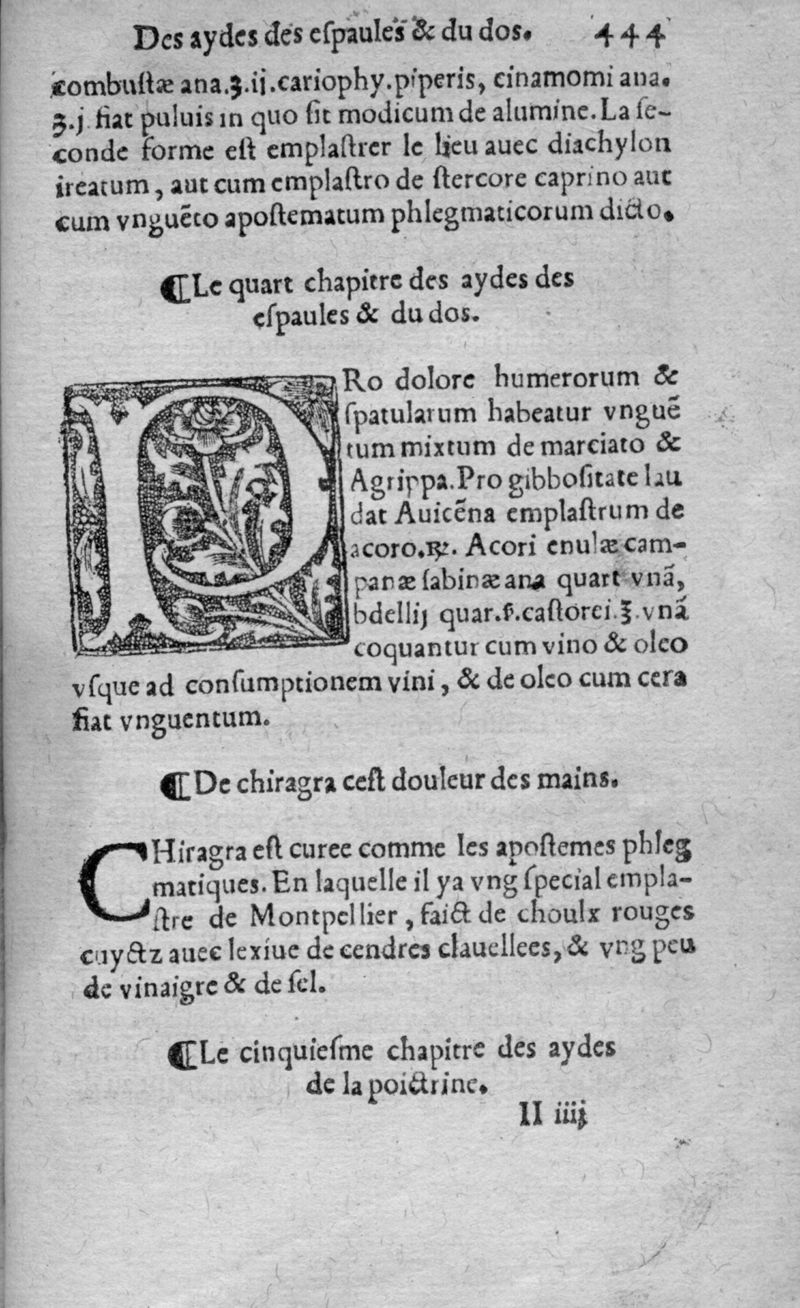 Des aydes des eſpaules & du dos. 444
combuſtæ ana.ʒ.ij.cariophy.piperis, cinamomi ana.
ʒ.j fiat puluis in quo ſit modicum de alumine. La ſe-
conde forme eſt emplaſtrer le lieu auec diachylon
ireatum, aut cum emplaſtro de ſtercore caprino aut
cum vnguẽto apoſtematum phlegmaticorum dicto.
¶Le quart chapitre des aydes des
eſpaules & du dos.
PRo dolore humerorum &
ſpatularum habeatur vnguẽ
tum mixtum de marciato &
Agrippa. Pro gibboſitate lau
dat Auicẽna emplaſtrum de
acoro.℞. Acori enulæ cam-
panæ ſabinæ ana quart vnã,
bdellij quar.ſ.caſtorei.℥.vnã
coquantur cum vino & oleo
vſque ad conſumptionem vini, & de oleo cum cera
fiat vnguentum.
¶De chiragra ceſt douleur des mains.
CHiragra eſt curee comme les apoſtemes phleg
matiques. En laquelle il ya vng ſpecial empla-
ſtre de Montpellier, faict de choulx rouges
cuyctz auec lexiue de cendres clauellees, & vng peu
de vinaigre & de ſel.
¶Le cinquieſme chapitre des aydes
de la poictrine.
ll iiij